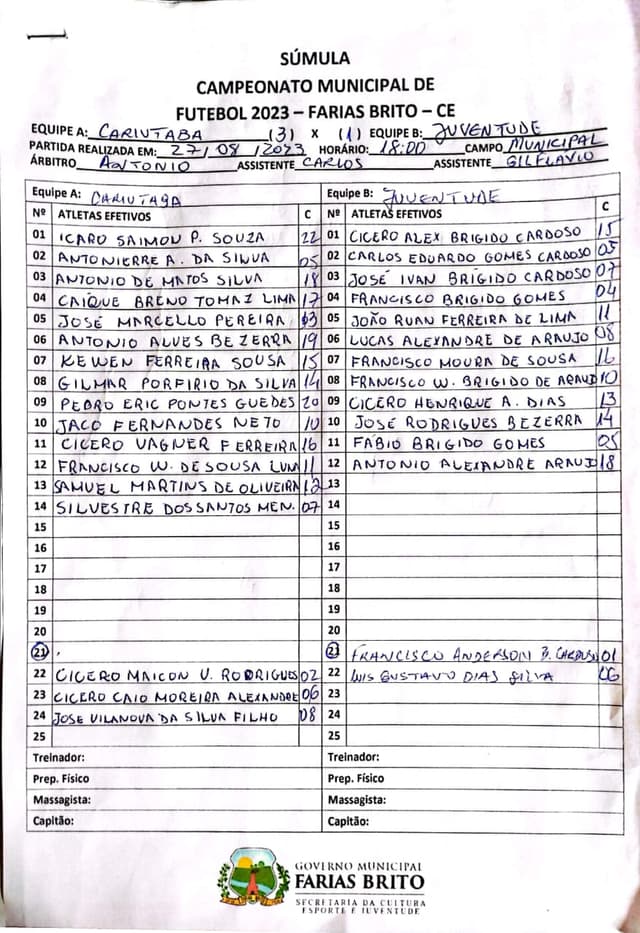 SÚMULA
CAMPEONATO MUNICIPAL DE
FUTEBOL 2023 – FARIAS BRITO – CE
EQUIPE A: CARIUTABA (3) X (1) EQUIPE B: JUVENTUDE
PARTIDA REALIZADA EM: 27/08/2023 HORÁRIO: 18:00 CAMPO MUNICIPAL
ÁRBITRO ANTONIO ASSISTENTE CARLOS ASSISTENTE GILFLAVIO
Equipe A: CARIUTABA Equipe B: JUVENTUDE
Nº ATLETAS EFETIVOS C Nº ATLETAS EFETIVOS C
01 ICARO SAIMON P. SOUZA 22 01 CICERO ALEX BRIGIDO CARDOSO 15
02 ANTONIERRE A. DA SILVA 05 02 CARLOS EDUARDO GOMES CARDOSO 03
03 ANTONIO DE MATOS SILVA 18 03 JOSÉ IVAN BRÍGIDO CARDOSO 07
04 CAIQUE BRENO TOMAZ LIMA 17 04 FRANCISCO BRIGIDO GOMES 04
05 JOSÉ MARCELLO PEREIRA 03 05 JOÃO RUAN FERREIRA DE LIMA 11
06 ANTONIO ALVES BEZERRA 19 06 LUCAS ALEXANDRE DE ARAUJO 08
07 KEWEN FERREIRA SOUSA 15 07 FRANCISCO MOURA DE SOUSA 16
08 GILMAR PORFIRIO DA SILVA 14 08 FRANCISCO W. BRIGIDO DE ARAUJO 10
09 PEDRO ERIC PONTES GUEDES 20 09 CICERO HENRIQUE A. DIAS 13
10 JACO FERNANDES NETO 10 10 JOSÉ RODRIGUES BEZERRA 14
11 CICERO VAGNER FERREIRA 16 11 FÁBIO BRIGIDO GOMES 05
12 FRANCISCO W. DE SOUSA LUNA 11 12 ANTONIO ALEXANDRE ARAUJO 18
13 SAMUEL MARTINS DE OLIVEIRA 12 13
14 SILVESTRE DOS SANTOS MEN. 07 14
15 15
16 16
17 17
18 18
19 19
20 20
21 21 FRANCISCO ANDERSON B. CARDOSO 01
22 CICERO MAICON V. RODRIGUES 02 22 LUIS GUSTAVO DIAS SILVA
23 CICERO CAIO MOREIRA ALEXANDRE 06 23
24 JOSE VILANOVA DA SILVA FILHO 08 24
25 25
Treinador: Treinador:
Prep. Físico Prep. Físico
Massagista: Massagista:
Capitão: Capitão:
GOVERNO MUNICIPAL
FARIAS BRITO
SECRETARIA DA CULTURA
ESPORTE E JUVENTUDE